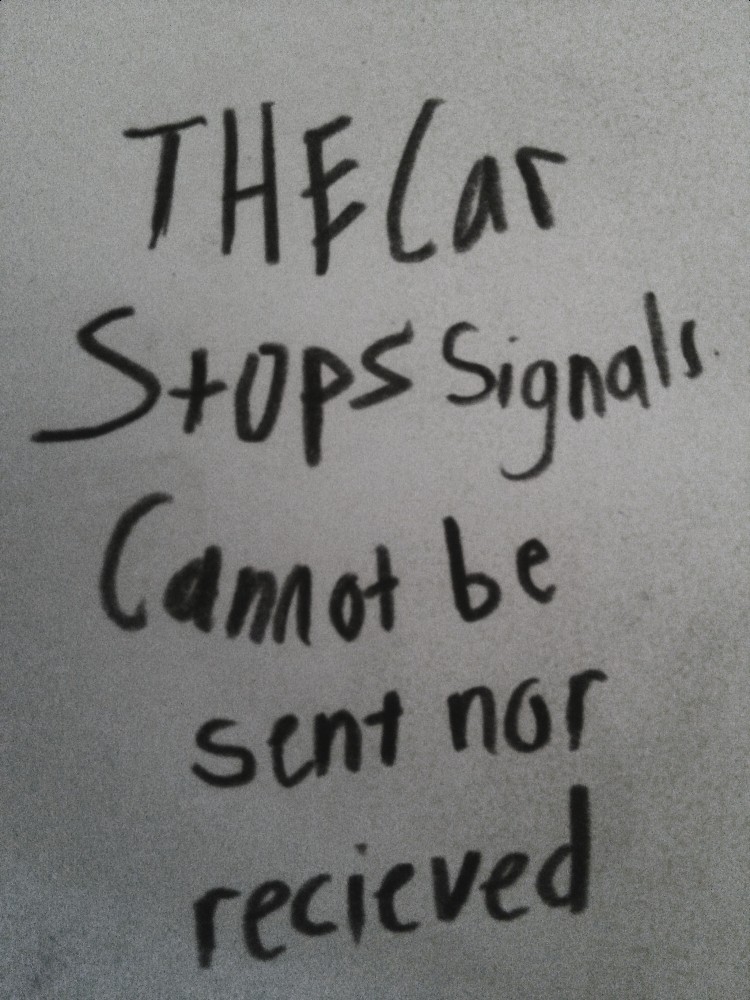 THE Car
Stops Signals.
Cannot be
sent nor
recieved